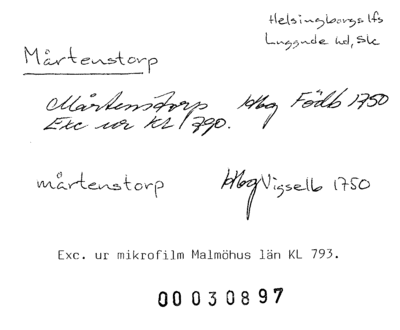 Helsingborgs lfs
Luggude hd, Sk
Mårtenstorp
Mårtenstorp Hbg Födb 1750
Exc ur KL 790.
mårtenstorp Hbg Vigselb 1750
Exc. ur mikrofilm Malmöhus län KL 793.
00030897